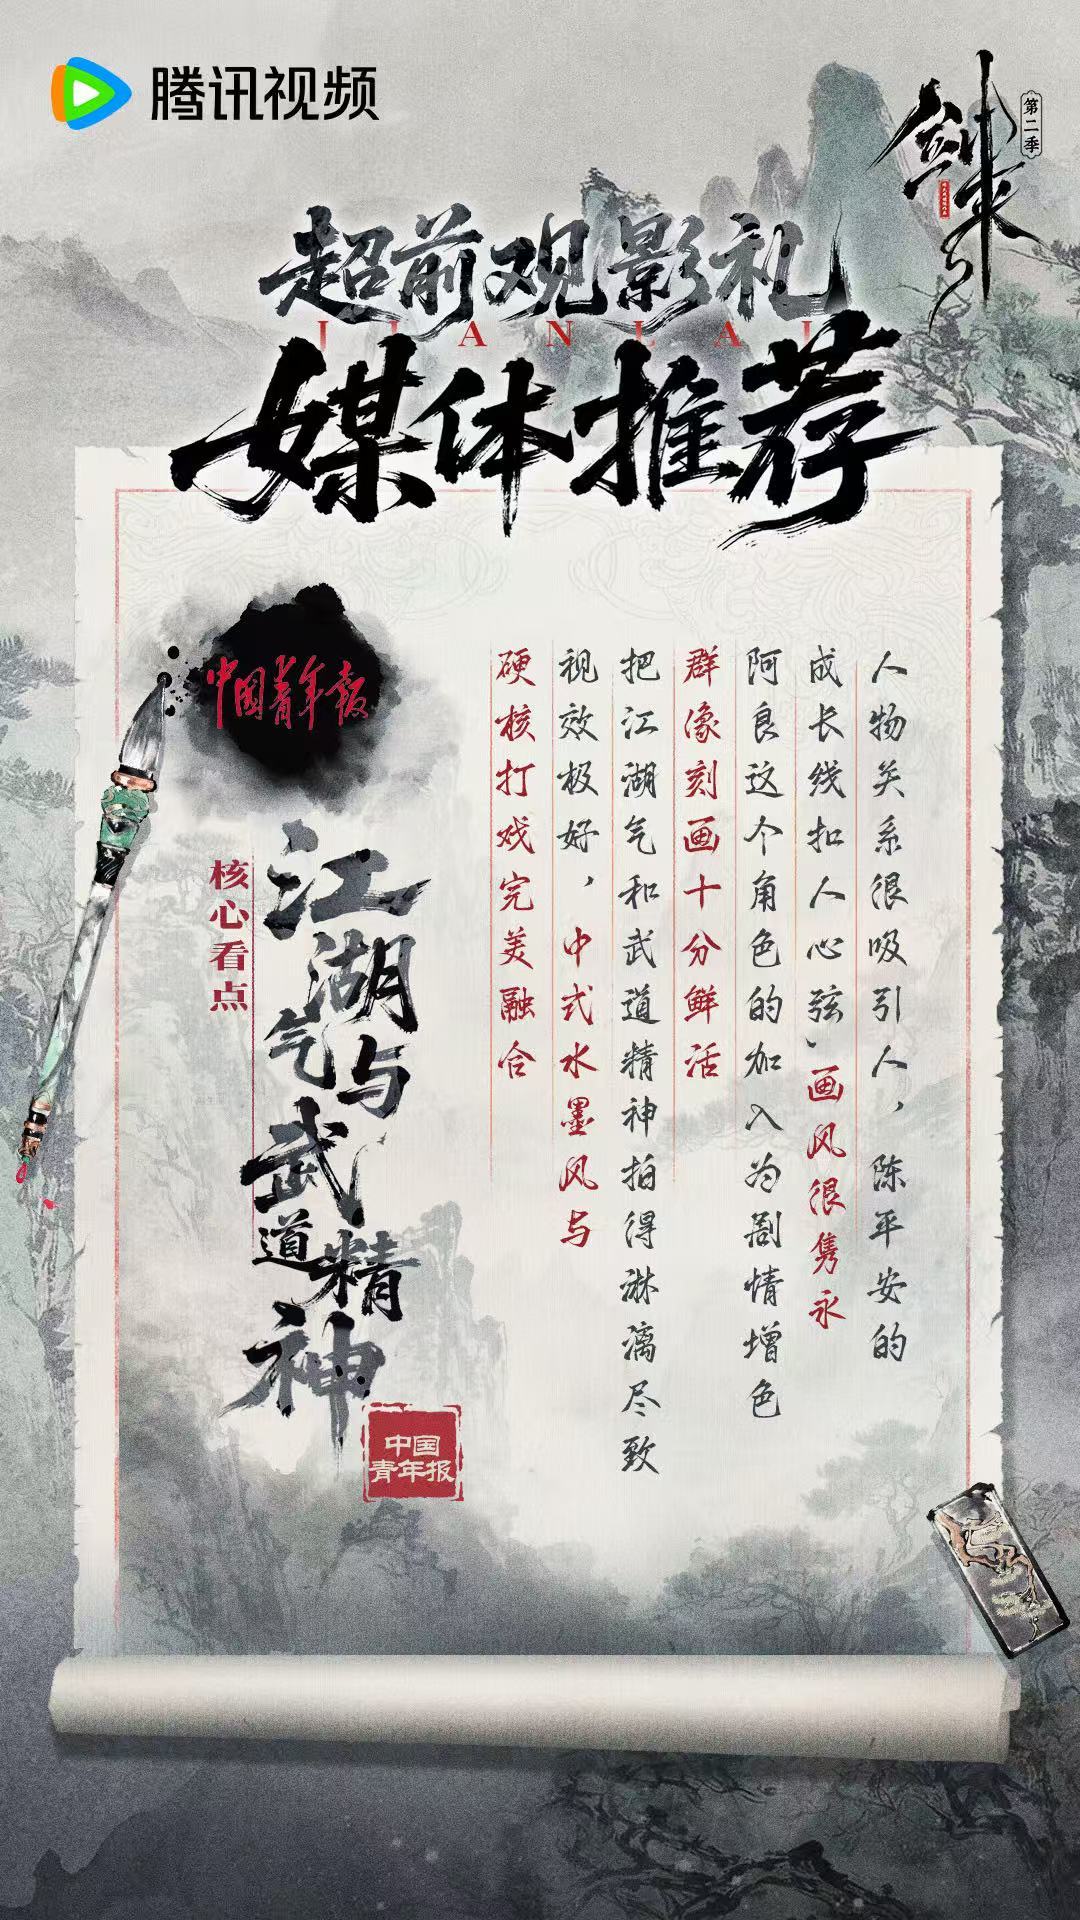 腾讯视频
剑来
第二季
超前观影礼
JIANLAI
媒体推荐
中国青年报
人物关系很吸引人，陈平安的
成长线扣人心弦、画风很隽永
阿良这个角色的加入为剧情增色
群像刻画十分鲜活
把江湖气和武道精神拍得淋漓尽致
视效极好，中式水墨风与
硬核打戏完美融合
核心看点
江湖气与武道精神
中国
青年报